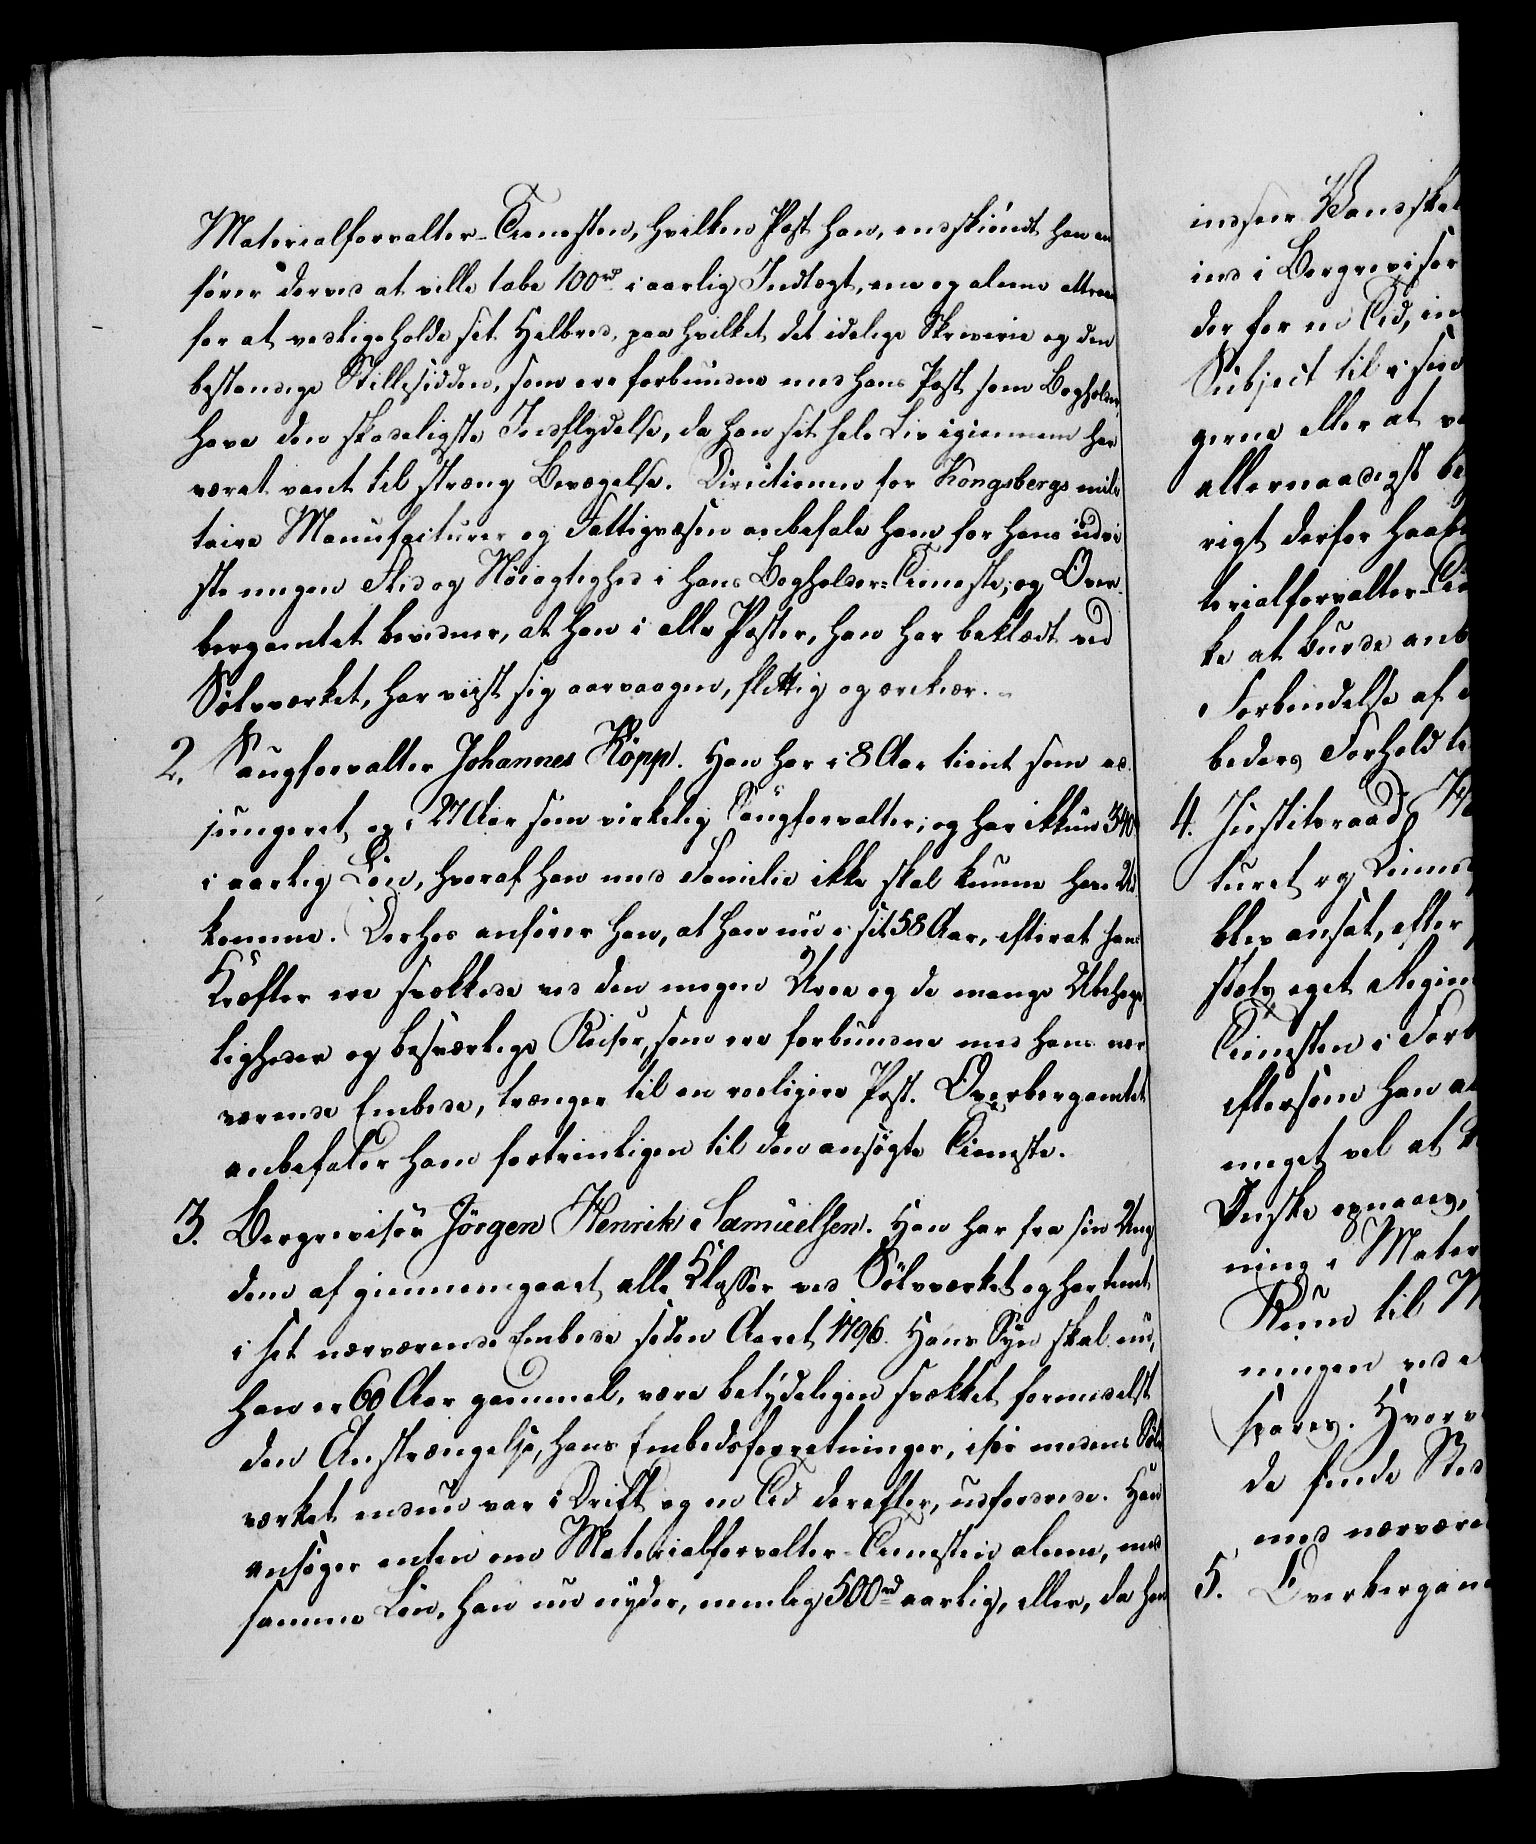 Materialforvalter-Tienesten, hvilken Post han, endskiöndt han an
förer derved at ville tabe 100 rd i aarlig Indtægt, ene og alene attraaer
for at vedligeholde sit Helbred, paa hvilket det idelige Skriverie og den
bestandige Stillesidden, som ere forbundne med hans Post som Bogholder,
have den skadeligste Indflydelse, da han sit hele Liv igiennem har
været vant til streng Bevægelse. Directionen for Kongsbergs mili
taire Manufacturer og Fattigvæsen anbefale ham for hans udvi
ste megen Flid og Nöiagtighed i hans Bogholder-Tieneste; og Over
bergamtet bevidner, at han i alle Poster, han har beklædt ved
Sölvværket, har viist sig aarvaagen, flittig og ærekier.
2. Saugforvalter Johannes Köpp. Han har i 8 Aar tient som ad
jungeret og i 27 Aar som virkelig Saugforvalter; og har ikkun 340 rd
i aarlig Lön, hvoraf han med Familie ikke skal kunne have Ud
komme. Derhos anförer han, at han nu i sit 58 Aar, efterat hans
Kræfter ere svækkede ved den megen Uroe og de mange Ubehage
ligheder og besværlige Reiser, som ere forbundne med hans nær
værende Embede, trænger til en roeligere Post. Overbergamtet
anbefaler ham fortrinligen til den ansögte Tieneste.
3. Bergrevisor Jörgen Henrik Samuelsen. Han har fra sin Ung
dom af giennemgaaet alle Klasser ved Sölvværket og har tient
i sit nærværende Embede siden Aaret 1796. Hans Syn skal nu,
han er 60 Aar gammel, være betydeligen svækket formedelst
den Anstrængelse, hans Embedsforretninger, især medens Sölv
værket endnu var i Drift og en Tid derefter, udfordrede. Han
ansöger enten om Materialforvalter-Tienesten alene, med
samme Lön, han nu nyder, nemlig 500 rd aarlig, eller, da han
indseer Vanskel
ind i Bergrevisor
der for en Tid, in
Subject til i sin
gerne eller at væ
allernaadigst be
rigt derfor haabe
terialforvalter-Tie
ke at burde anb
Forbindelse af
beders Forhold til
4. Justitsraad
turet og Linned
blev ansat, efter
skelv eget Regim
Tienesten i Forb
eftersom han an
meget vel at
Önske opnaaes,
ning i Mater
Ruin til M
ningen ved
spares. Hvorv
de finde Sted
med nærvære
5. Overbergam